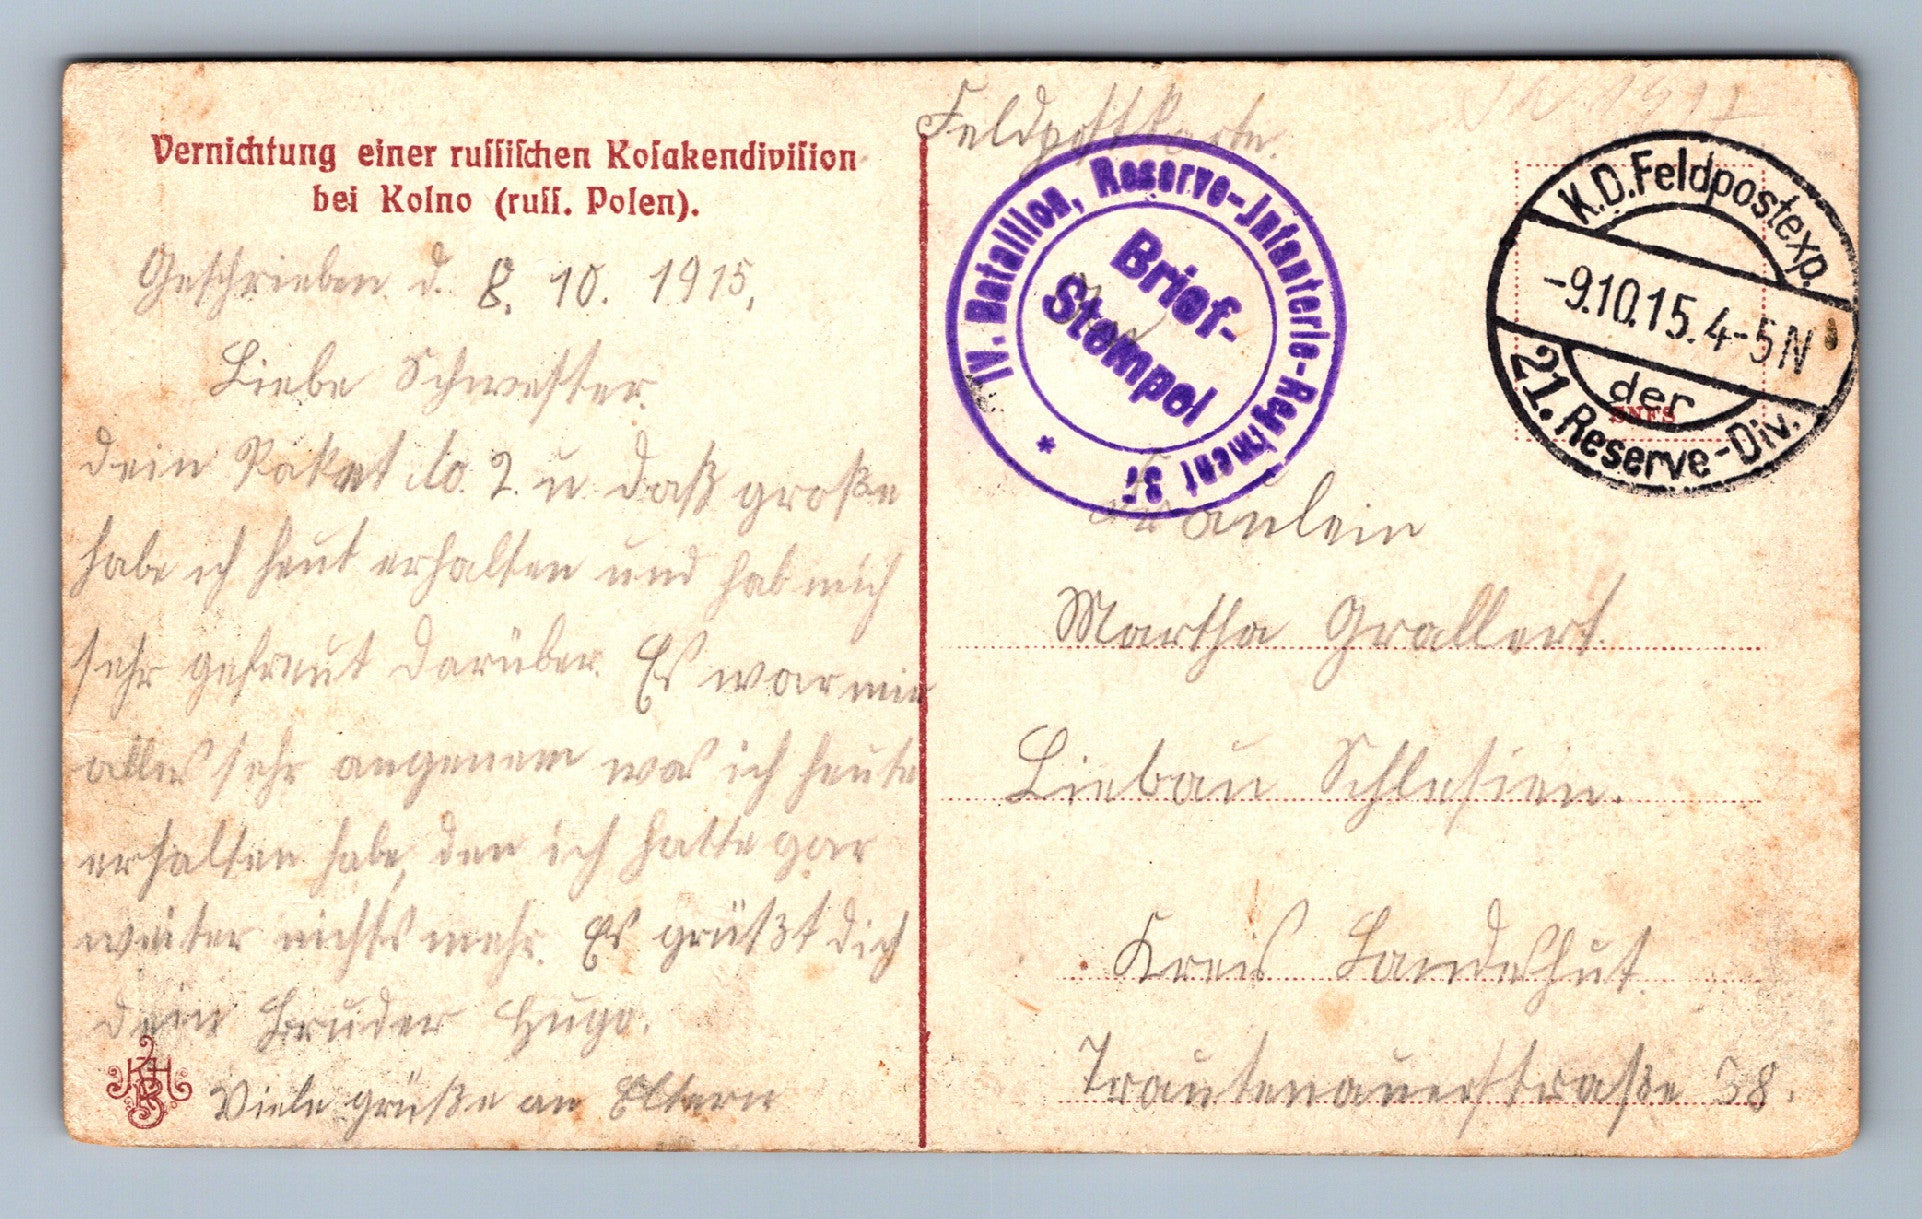 Vernichtung einer russischen Kosakendivision
bei Kolno (russ. Polen).
Geschrieben d. 8. 10. 1915.
Liebe Schwester.
dein Paket No. 2. u daß große
habe ich heut erhalten und hab mich
sehr gefreut darüber. Es war mir
alles sehr angenem was ich heute
erhalten habe, den ich hatte gar
weiter nichts mehr. Es grüßt dich
dein Bruder Hugo.
Viele grüße an Eltern
Feldpostkarte.
IV. Bataillon, Reserve-Infanterie-Regiment 37
*
Brief-
Stempel
K.D. Feldpostexp.
-9.10.15.4-5N
der
21. Reserve-Div.
Fräulein
Martha Grallert.
Liebau Schlesien.
Kreis Landeshut.
Trautenauerstraße 38.